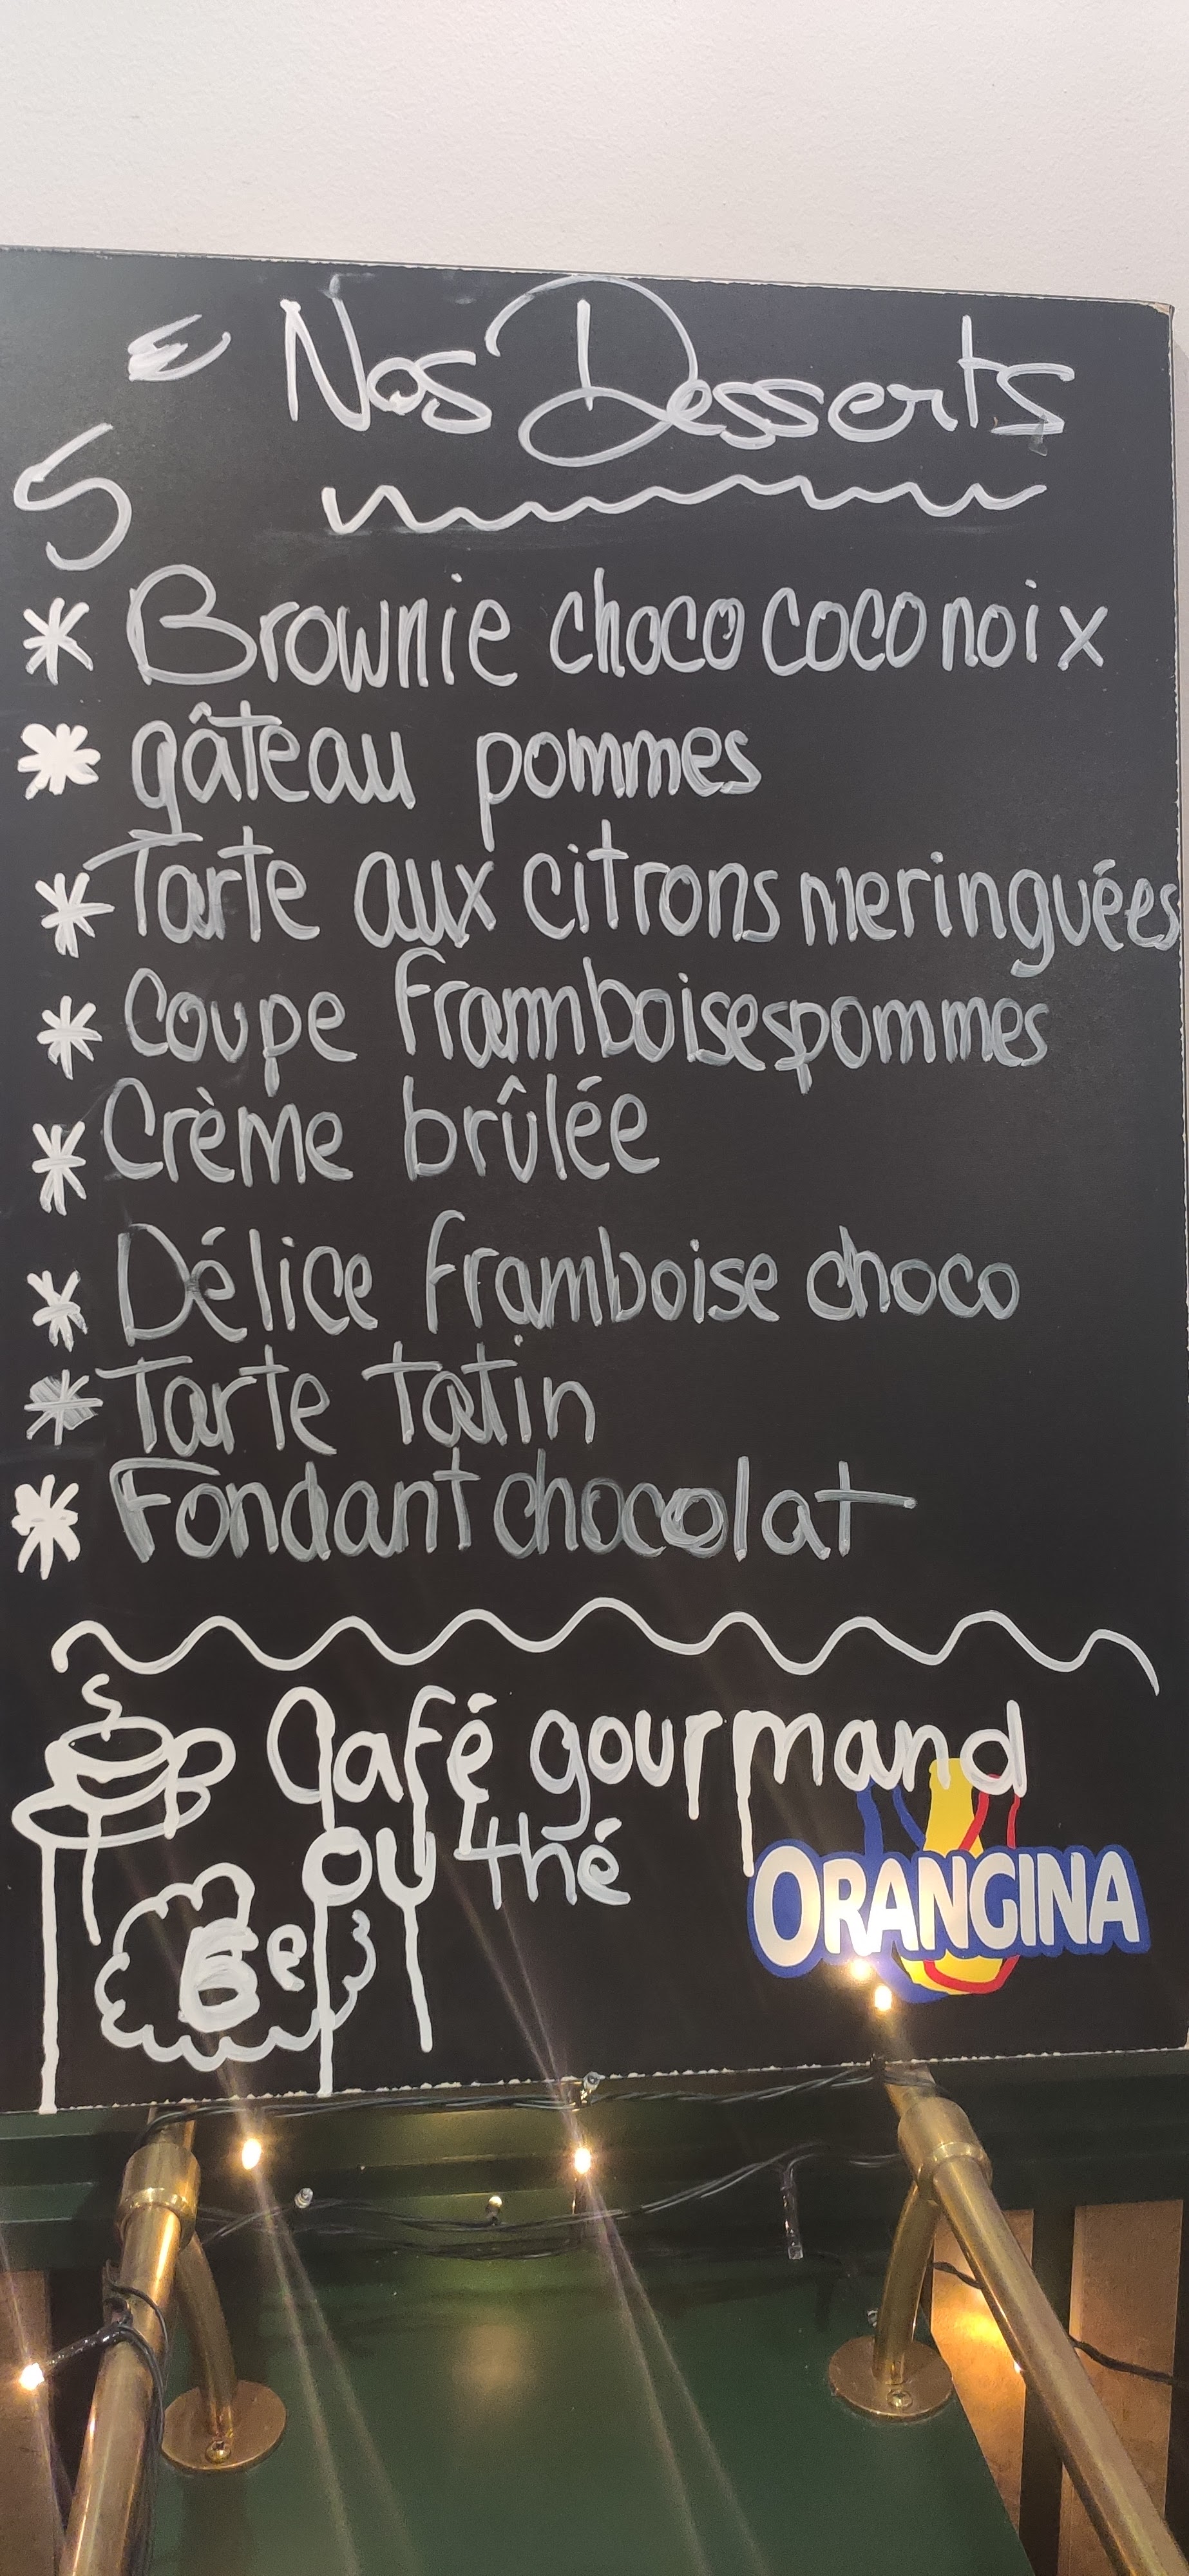 5 € Nos Desserts
* Brownie choco coco noix
* gâteau pommes
* Tarte aux citrons meringuées
* Coupe framboises pommes
* Crème brûlée
* Délice framboise choco
* Tarte tatin
* Fondant chocolat
Café gourmand
ou thé
6e
ORANGINA